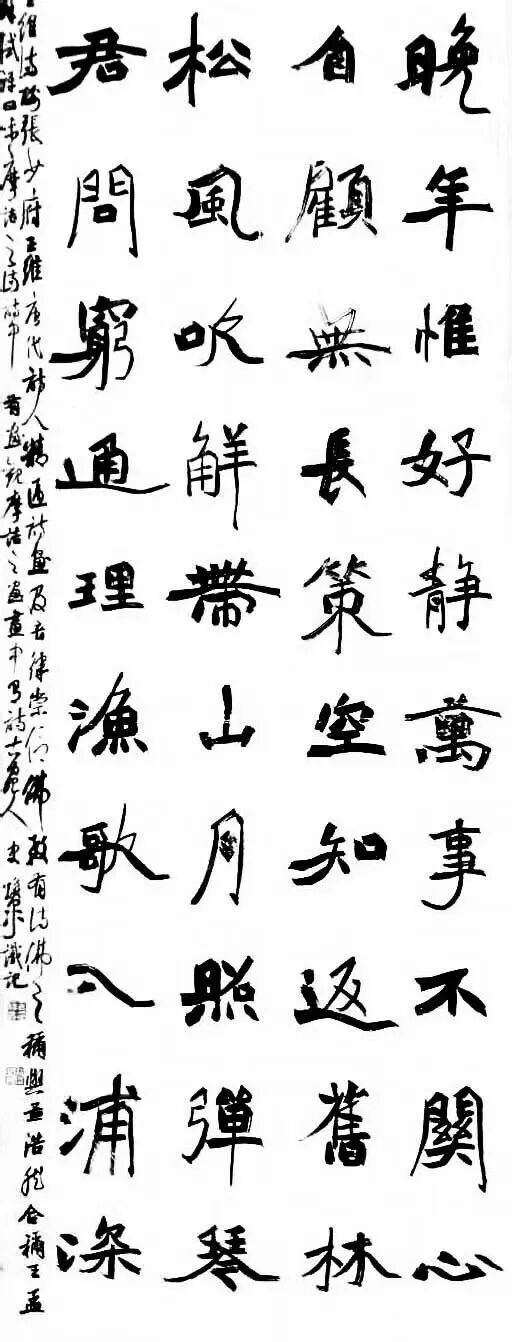 晚年惟好静萬事不關心
自顧無長策空知返舊林
松風吹解帶山月照彈琴
君問窮通理漁歌入浦深
王維詩酬張少府王維唐代詩人精通詩畫及音律崇信佛教有詩佛之稱與孟浩然合稱王孟
蘇軾評曰味摩詰之詩詩中有畫觀摩詰之畫畫中有詩
識記